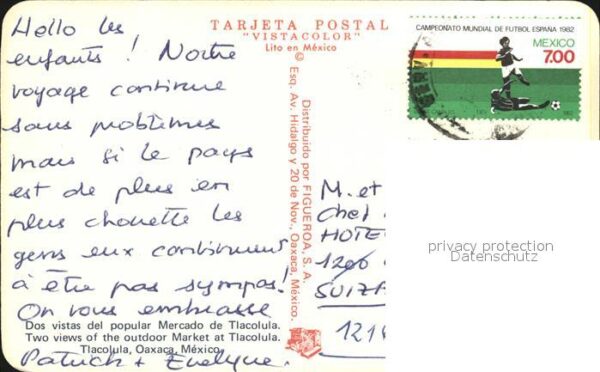 Hello les
enfants ! Notre
voyage continue
sans problèmes
mais si le pays
est de plus en
plus chouette les
gens eux continuent
à être pas sympas!
On vous embrasse
Patrick + Evelyne.
TARJETA POSTAL
"VISTACOLOR"
Lito en México
©
Distribuido por FIGUEROA, S. A.
Esq. Av. Hidalgo y 20 de Nov., Oaxaca, México.
Dos vistas del popular Mercado de Tlacolula.
Two views of the outdoor Market at Tlacolula.
Tlacolula, Oaxaca, México.
CAMPEONATO MUNDIAL DE FUTBOL ESPAÑA 1982
MEXICO
7.00
M. et
Chef
HOTE
1206
SUIZA
1214
privacy protection
Datenschutz